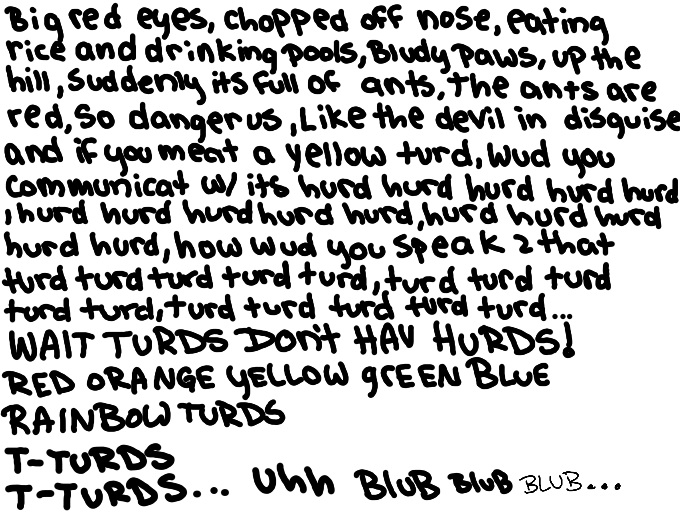 Big red eyes, chopped off nose, eating
rice and drinking pools, Bludy paws, up the
hill, suddenly its full of ants, The ants are
red, So danger us, Like the devil in disguise
and if you meat a yellow turd, wud you
communicat w/ its hurd hurd hurd hurd hurd
, hurd hurd hurd hurd hurd, hurd hurd hurd
hurd hurd, how wud you speak 2 that
turd turd turd turd turd, turd turd turd
turd turd, turd turd turd turd turd...
WAIT TURDS Don't HAV HURDS!
RED ORANGE YELLOW gREEN BLUE
RAINBOW TURDS
T-TURDS
T-TURDS... Uhh BluB BluB BLUB...